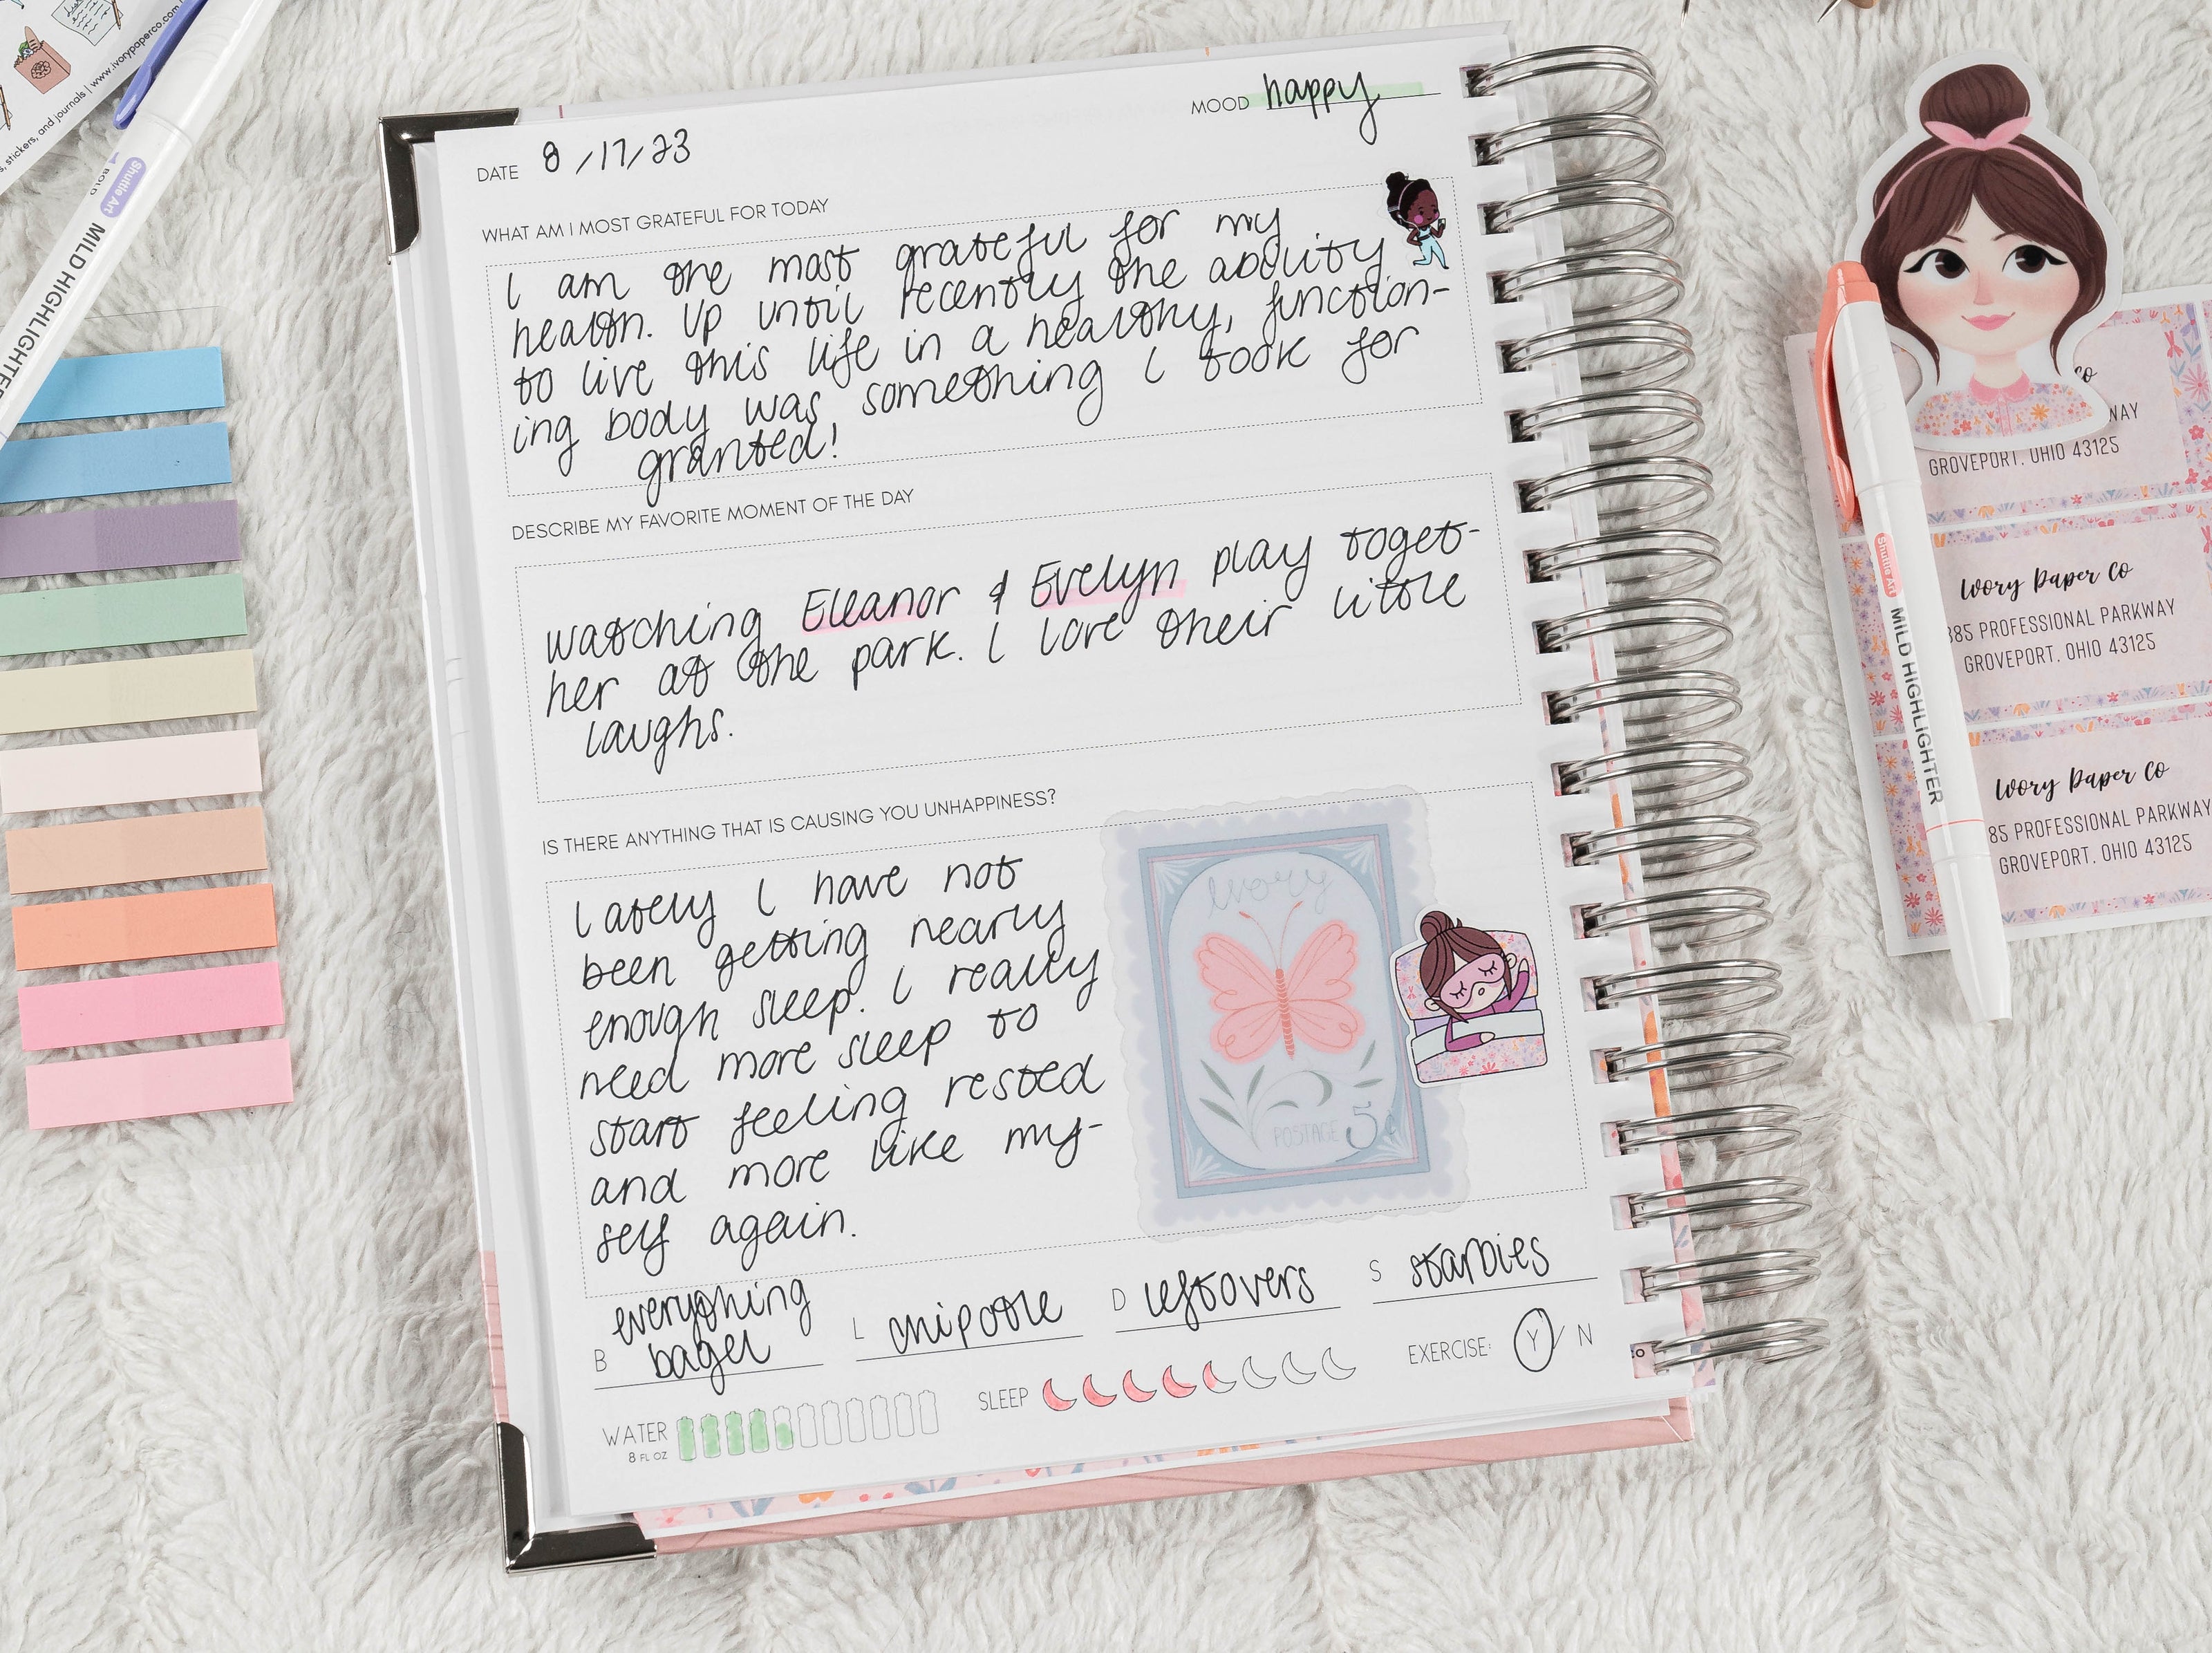 stickers, and journals | www.ivorypaperco.com
Shuttle Art
BOLD
MILD HIGHLIGHTER
DATE 8/17/23
MOOD happy
WHAT AM I MOST GRATEFUL FOR TODAY
I am the most grateful for my
health. Up until recently the ability
to live this life in a healthy, function-
ing body was something I took for
granted!
DESCRIBE MY FAVORITE MOMENT OF THE DAY
watching Eleanor & Evelyn play toget-
her at the park. I love their little
laughs.
IS THERE ANYTHING THAT IS CAUSING YOU UNHAPPINESS?
Lately I have not
been getting nearly
enough sleep. I really
need more sleep to
start feeling rested
and more like my-
self again.
Ivory
POSTAGE 5¢
B everything
bagel
L chipotle
D leftovers
S starbies
EXERCISE: Y / N
WATER
8 FL OZ
SLEEP
CO
CO
WAY
GROVEPORT, OHIO 43125
Ivory Paper Co
885 PROFESSIONAL PARKWAY
GROVEPORT, OHIO 43125
Ivory Paper Co
85 PROFESSIONAL PARKWAY
GROVEPORT, OHIO 43125
Shuttle Art
MILD HIGHLIGHTER